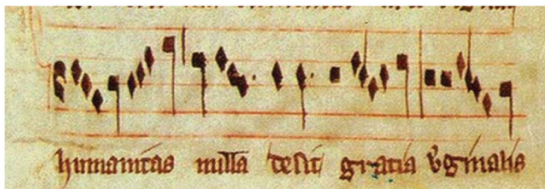 humanitas nulla desit gratia v͛ginalis